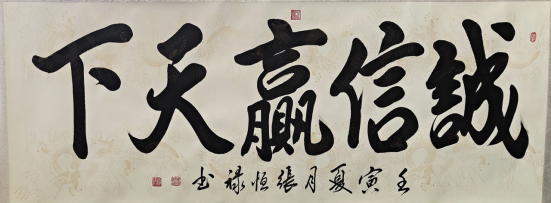 誠信贏天下
壬寅夏月張恒祿书